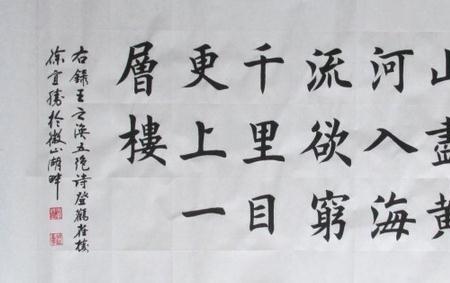 山盡黃
河入海
流欲窮
千里目
更上一
層樓
右錄王之渙五絕詩登鸛雀樓
徐宜勝於微山湖畔